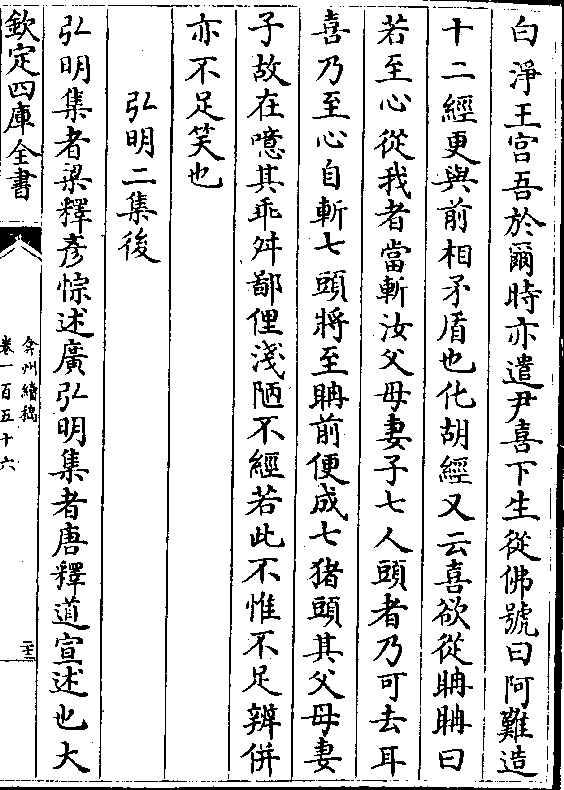 白淨王宮吾於爾時亦遣尹喜下生從佛號曰阿難造
十二經更與前相矛盾也化胡經又云喜欲從聃聃曰
若至心從我者當斬汝父母妻子七人頭者乃可去耳
喜乃至心自斬七頭將至聃前便成七猪頭其父母妻
子故在噫其乖舛鄙俚淺陋不經若此不惟不足辨併
亦不足笑也
弘明二集後
弘明集者梁釋彥悰述廣弘明集者唐釋道宣述也大
欽定四庫全書
弇州續稿
卷一百五十六